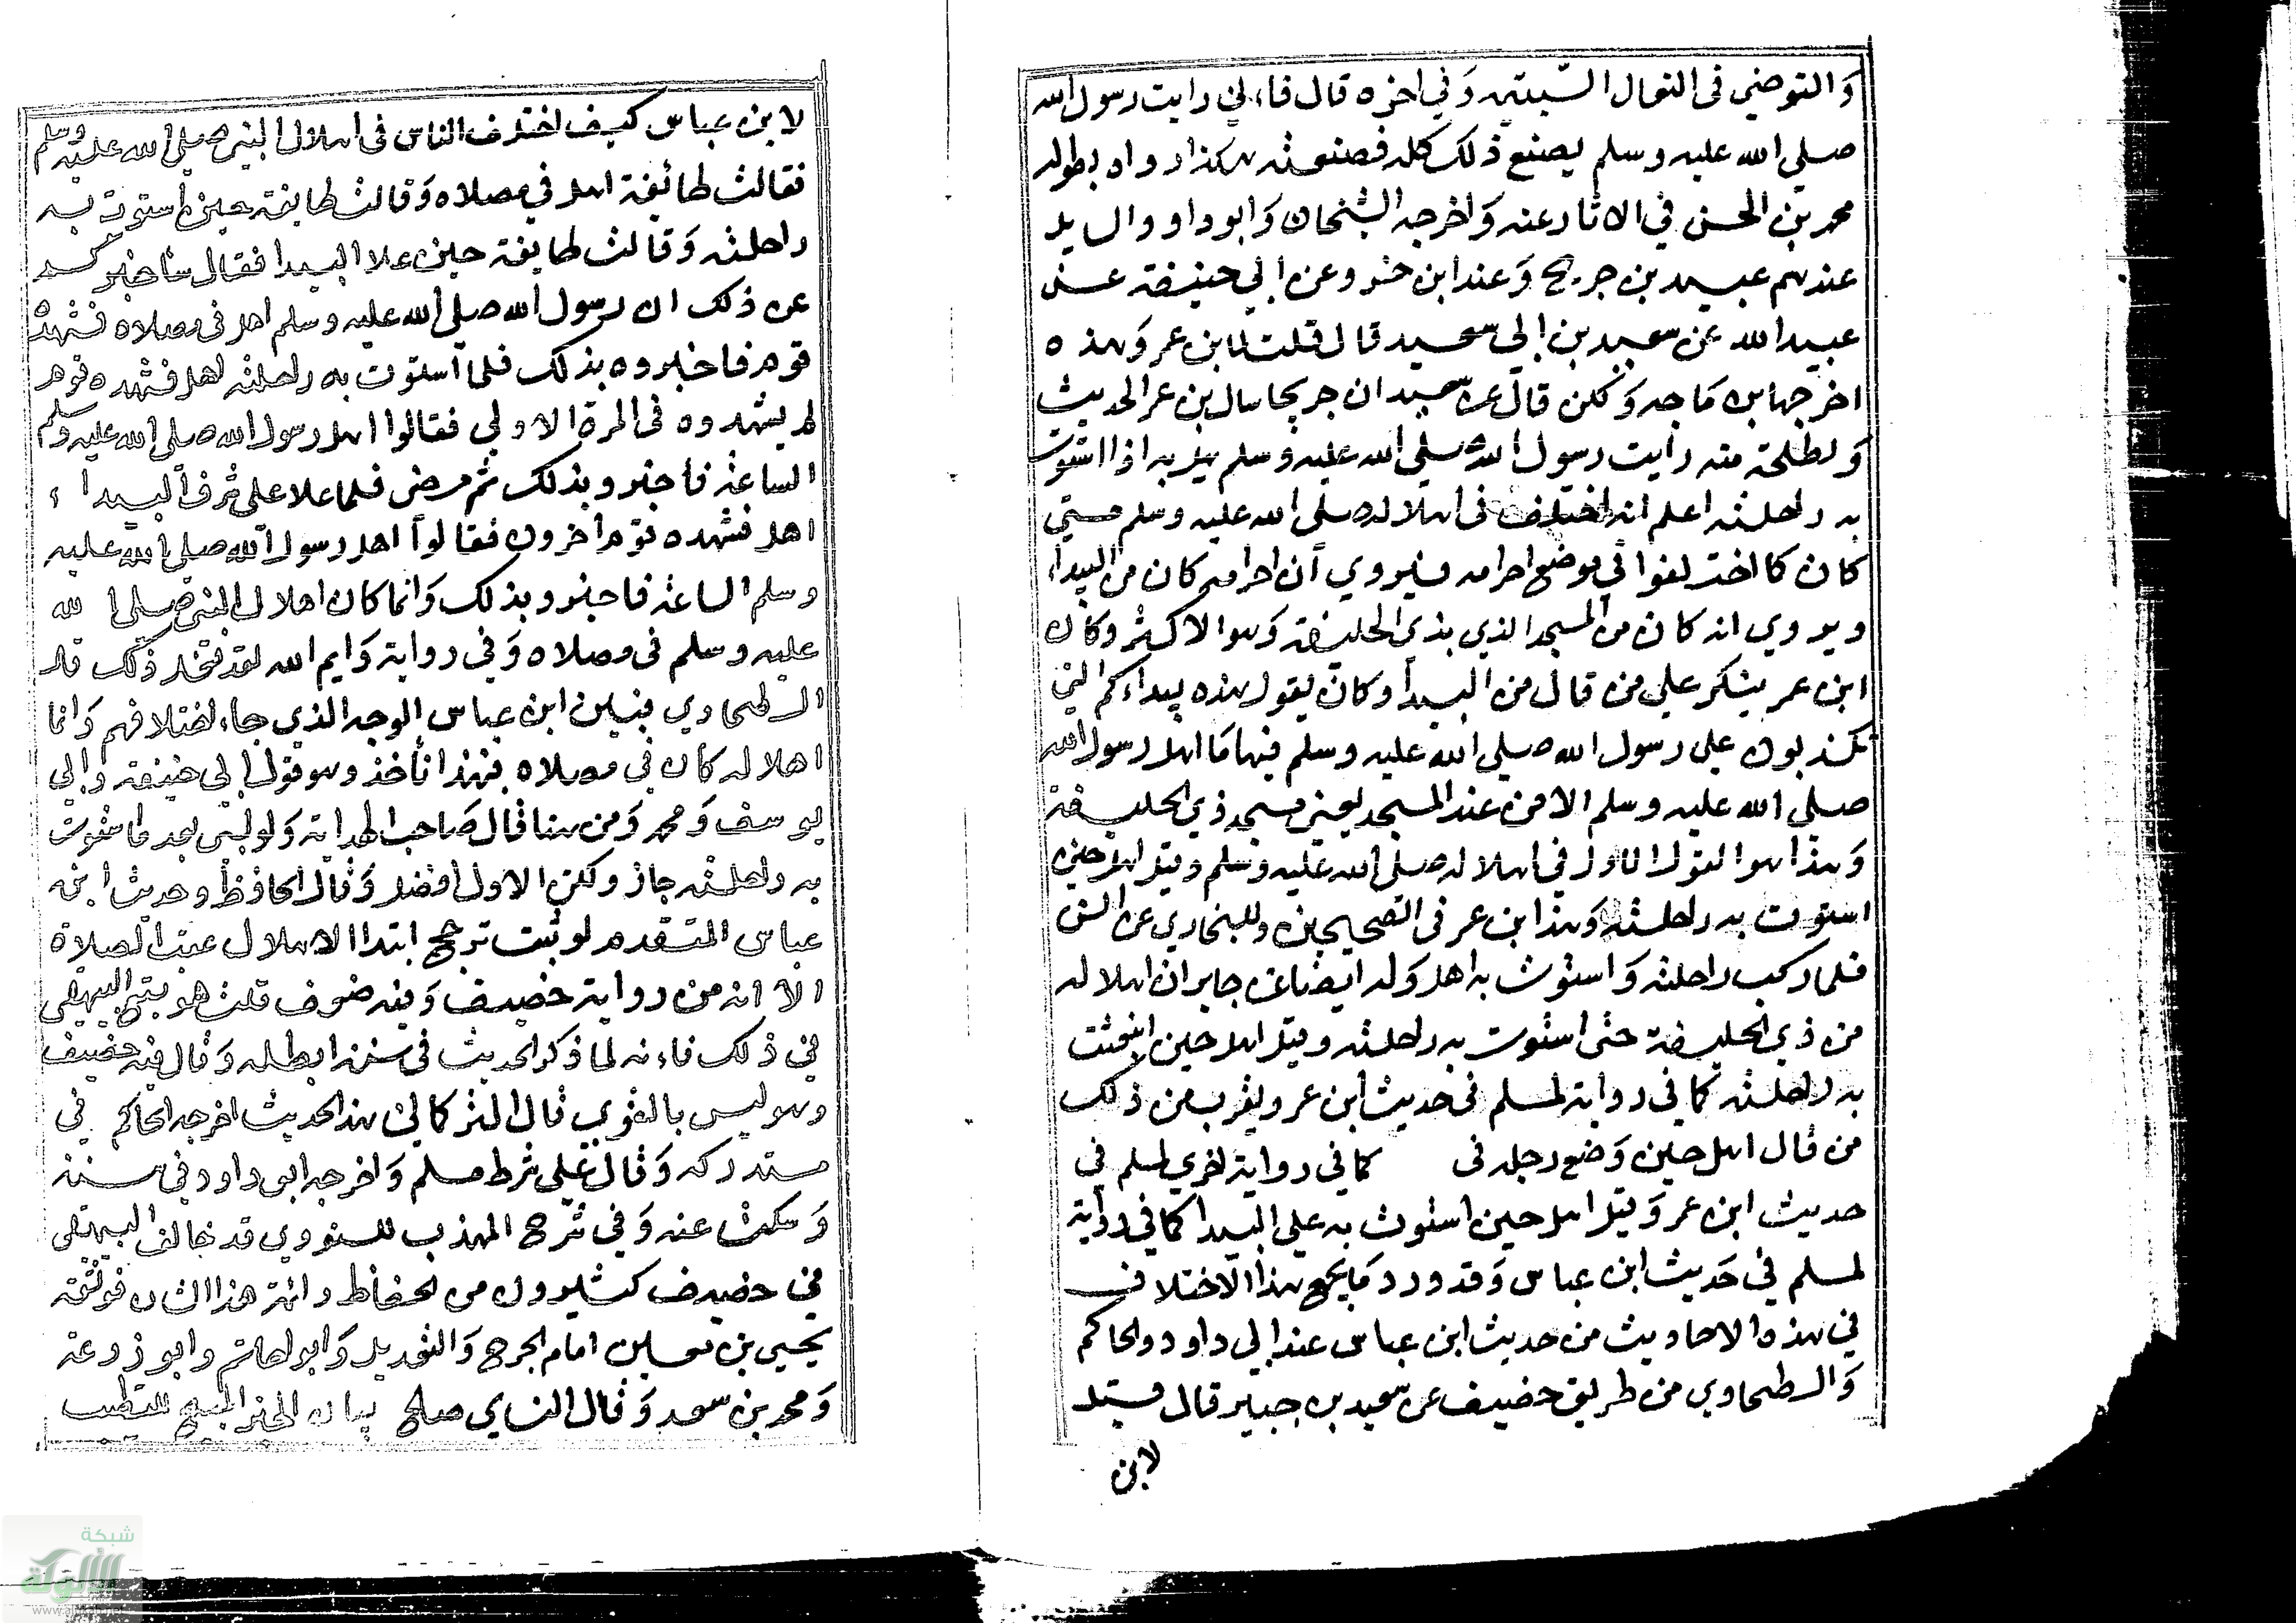 وَالتوضي فى النعال السّبتيه وَفي اخره قال فاءني رايت رسول الله
صلي الله عليه وسلم يصنع ذلك كله فصنعته هكذا رواه بطوله
محمد بن الحسن في الاثار عنه وَاخرجه الشيخان وَابو داود والسايل
عندهم عبيد بن جريج وَعند ابن خسرو عن ابي حنيفة عن
عبيد الله عن سعيد بن ابي سعيد قال قلت لابن عمر وَهذه
اخرجها ابن مَاجه وَلكن قال عن سعيد ان جريجا سال بن عمر الحديث
وَلطلحة منه رأيت رسول الله صلي الله عليه وسلم يلبي به اذا استوت
به راحلته اعلم انه اختلف فى اهلاله صلى الله عليه وسلم متي
كان كما اختلفوا في موضع احرامه فيروي أن احرامه كان من البيداء
ويروي انه كان من المسجد الذي بذي الحليفة وَهو الاكثر وكان
ابن عمر ينكر على من قال من البيدأ وكان يقول هذه بيداءكم التي
تكذبون على رسول الله صلي الله عليه وسلم فيها مَا اهل رسول الله
صلي الله عليه وسلم الا من عند المسجد يعني مسجد ذي الحليفة
وَهذا هو القول الاول في اهلاله صلى الله عليه وسلم وقيل اهل حين
استوت به راحلته وَهذا ابن عمر فى الصحيحين وللبخاري عن انس
فلما ركب راحلته وَاستوت به اهل وَله ايضا عن جابر ان اهلاله
من ذي الحليفة حتى استوت به راحلته وقيل اهل حين انبعثت
به راحلته كما في رواية لمسلم فى حديث ابن عمر ويقرب من ذلك
من قال اهل حين وَضع رجله فى كما في رواية اخري لمسلم في
حديث ابن عمر وَقيل اهل حين استوت به علي البيدا كما في رواية
لمسلم في حَديث ابن عباس وَقد ورد مَا يجمع هذا الاختلاف
في هذه الاحاديث من حديث ابن عباس عند ابي داود والحاكم
وَالطحاوي من طريق خصيف عن سعيد بن جبير قال قيل
لابن
لابن عباس كيف اختلف الناس فى اهلال النبي صلي الله عليه وسلم
فقالت طائفة اهل في مصلاه وَقالت طايفة حين استوت به
راحلته وَقالت طايفة حين علا البيدا فقال سأخبركم
عن ذلك ان رسول الله صلي الله عليه وسلم اهل فى مصلاه فشهد
قوم فاخبروه بذلك فلما استوت به راحلته اهل فشهده قوم
لم يشهدوه فى المرة الاولي فقالوا اهل رسول الله صلي الله عليه وسلم
الساعة فأخبرو بذلك ثم مضى فلما علا على شرف البيداء
اهل فشهده قوم آخرون فقالوا اهل رسول الله صلي الله عليه
وسلم الساعة فاخبرو بذلك وَانما كان اهلال النبي صلى الله
عليه وسلم فى مصلاه وَفي رواية وَايم الله لقد فعل ذلك قال
الطحاوي فبين ابن عباس الوجه الذي جاء اختلافهم وَانما
اهلاله كان في مصلاه فبهذا نأخذ وهو قول ابي حنيفة وابي
يوسف وَمحمد وَمن هنا قال صَاحب الهداية وَلو لبى بعد ما استوت
به راحلته جاز ولكن الاول افضل وَقال الحافظ وحديث ابن
عباس المتقدم لو ثبت ترجح ابتدا الاهلال عقب الصلاة
الا انه من رواية خصيف وَفيه ضعف قلت هو يتبع البيهقي
في ذلك فاءنه لما ذكر الحديث فى سننه ابطله وَقال فيه خصيف
وهو ليس بالقوي قال التركماني هذا الحديث اخرجه الحاكم في
مستدركه وَقال على شرط مسلم وَاخرجه ابو داود في سننه
وَسكت عنه وَفي شرح المهذب للنووي قد خالف البيهقي
في خصيف كثيرون من الحفاظ وائمة هذا الشان فوثقه
يحيى بن معين امام الجرح وَالتعديل وَابو حاتم وابو زرعة
وَمحمد بن سعد وَقال النساي صالح
شبكة
الألوكة